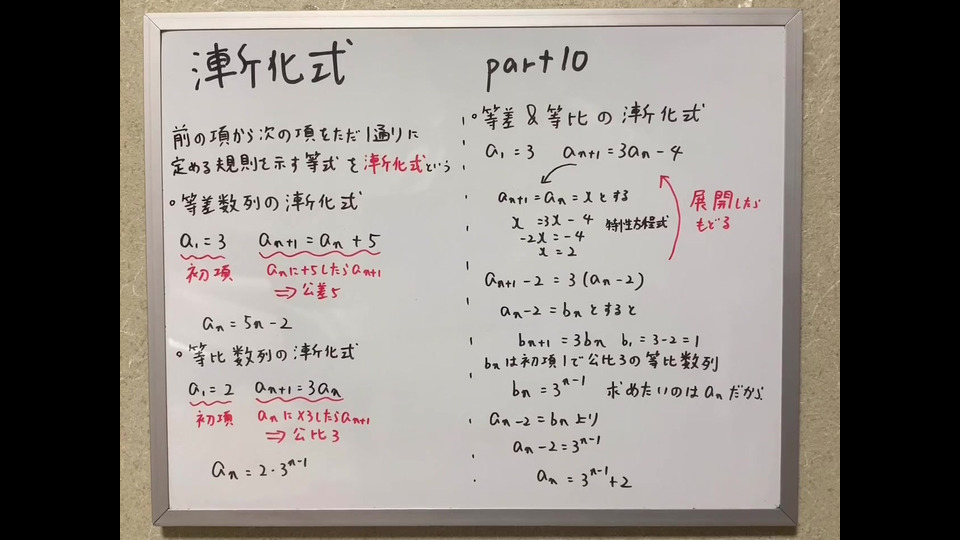 漸化式
前の項から次の項をただ1通りに
定める規則を示す等式を漸化式という
。等差数列の漸化式
a₁=3 aₙ₊₁=aₙ+5
初項 aₙに+5したらaₙ₊₁
⇒公差5
aₙ=5n-2
。等比数列の漸化式
a₁=2 aₙ₊₁=3aₙ
初項 aₙに×3したらaₙ₊₁
⇒公比3
aₙ=2・3ⁿ⁻¹
part10
。等差&等比の漸化式
a₁=3 aₙ₊₁=3aₙ-4
aₙ₊₁=aₙ=xとする
x=3x-4 特性方程式
-2x=-4
x=2
展開したら
もどる
aₙ₊₁-2=3(aₙ-2)
aₙ-2=bₙとすると
bₙ₊₁=3bₙ b₁=3-2=1
bₙは初項1で公比3の等比数列
bₙ=3ⁿ⁻¹ 求めたいのはaₙだから
aₙ-2=bₙより
aₙ-2=3ⁿ⁻¹
aₙ=3ⁿ⁻¹+2